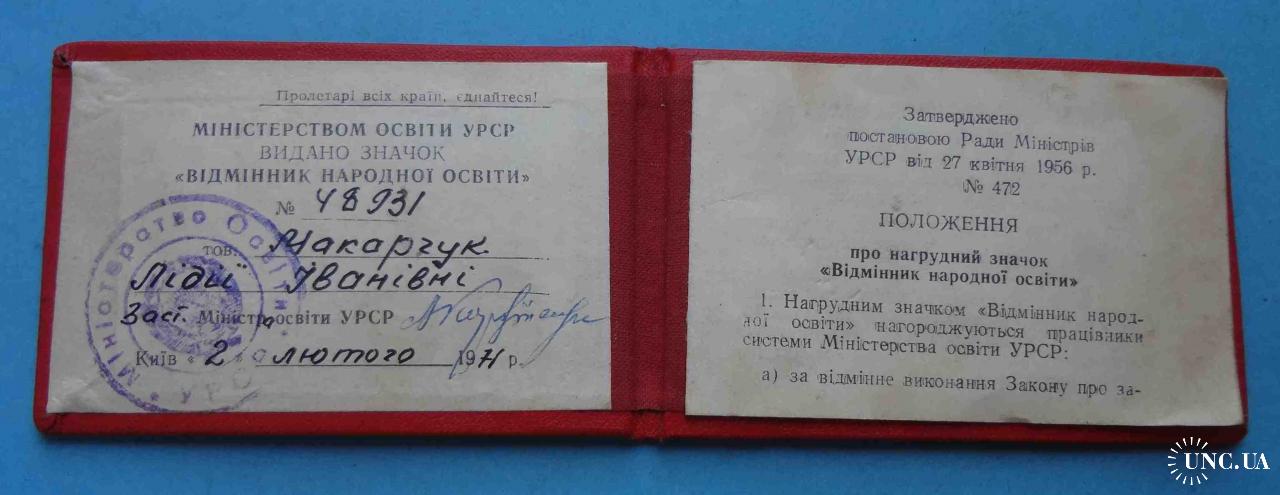 Пролетарі всіх країн, єднайтеся!
МІНІСТЕРСТВОМ ОСВІТИ УРСР
ВИДАНО ЗНАЧОК
«ВІДМІННИК НАРОДНОЇ ОСВІТИ»
№ 48931
тов. Макарчук
Лідії Іванівні
Заст. Міністра освіти УРСР
Київ «2» лютого 1971 р.
Міністерство Освіти УРСР
Затверджено
постановою Ради Міністрів
УРСР від 27 квітня 1956 р.
№ 472
ПОЛОЖЕННЯ
про нагрудний значок
«Відмінник народної освіти»
1. Нагрудним значком «Відмінник народ-
ної освіти» нагороджуються працівники
системи Міністерства освіти УРСР:
а) за відмінне виконання Закону про за-
UNC.UA